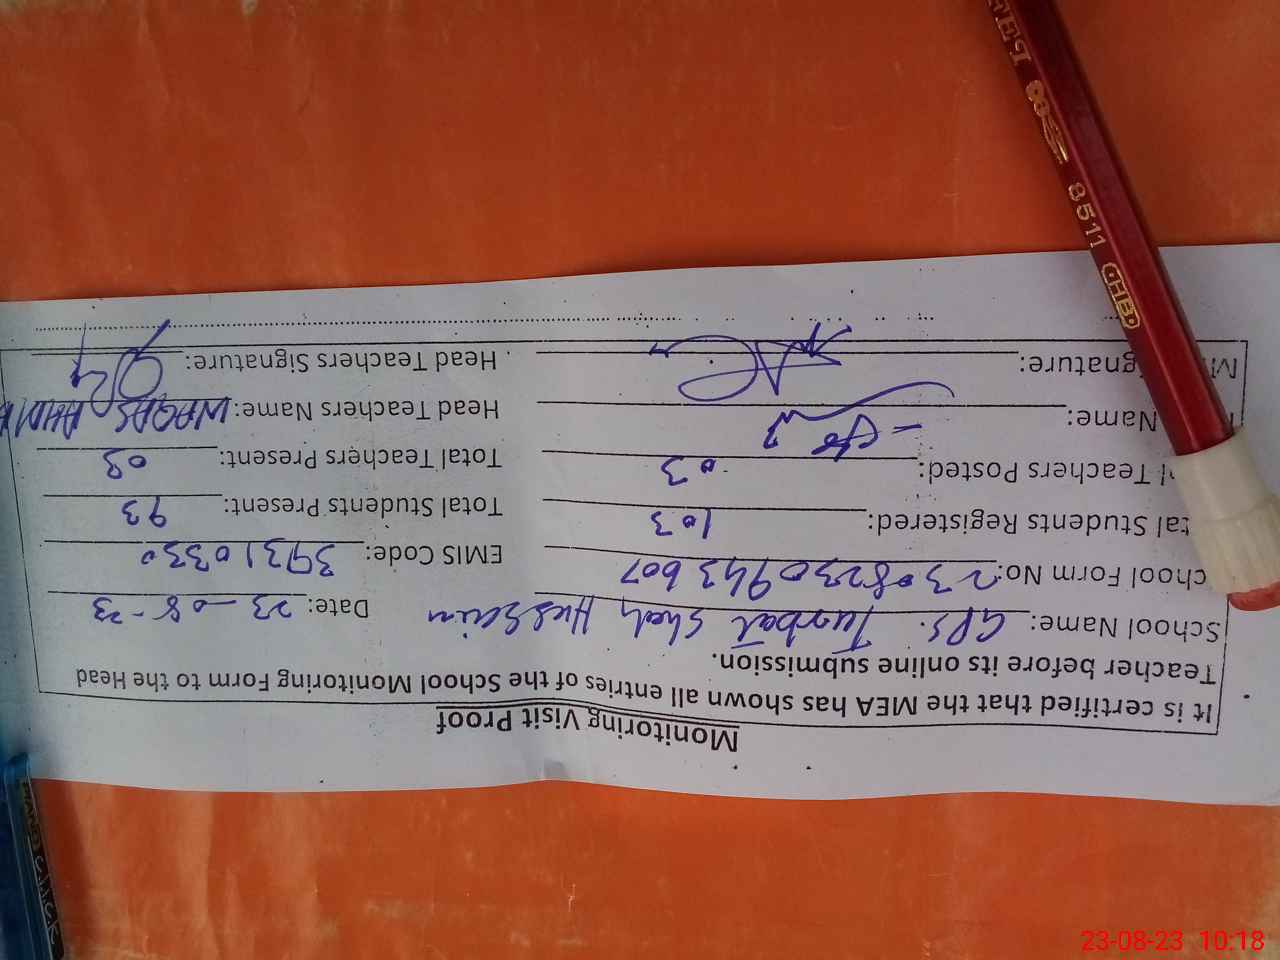 Monitoring Visit Proof
It is certified that the MEA has shown all entries of the School Monitoring Form to the Head
Teacher before its online submission.
School Name: GPS. Turbat Shah Hussain Date: 23-08-23
chool Form No: 2308230943607 EMIS Code: 39310330
tal Students Registered: 103 Total Students Present: 93
l Teachers Posted: 03 Total Teachers Present: 03
Name: Head Teachers Name: WAQAS AHMA
gnature: Head Teachers Signature:
8511 HB
23-08-23 10:18